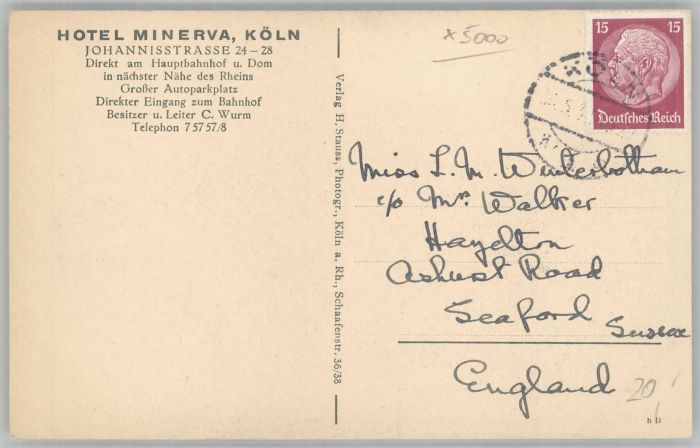 HOTEL MINERVA, KÖLN
JOHANNISSTRASSE 24–28
Direkt am Hauptbahnhof u. Dom
in nächster Nähe des Rheins
Großer Autoparkplatz
Direkter Eingang zum Bahnhof
Besitzer u. Leiter C. Wurm
Telephon 75757/8
Verlag H. Stauss, Photogr., Köln a. Rh., Schaafenstr. 36/38
x5000
15 15
Deutsches Reich
KÖLN
Miss L. M. Winterbotham
c/o Mrs. Walker
Hazelton
Ashurst Road
Seaford
Sussex
England
20
h D